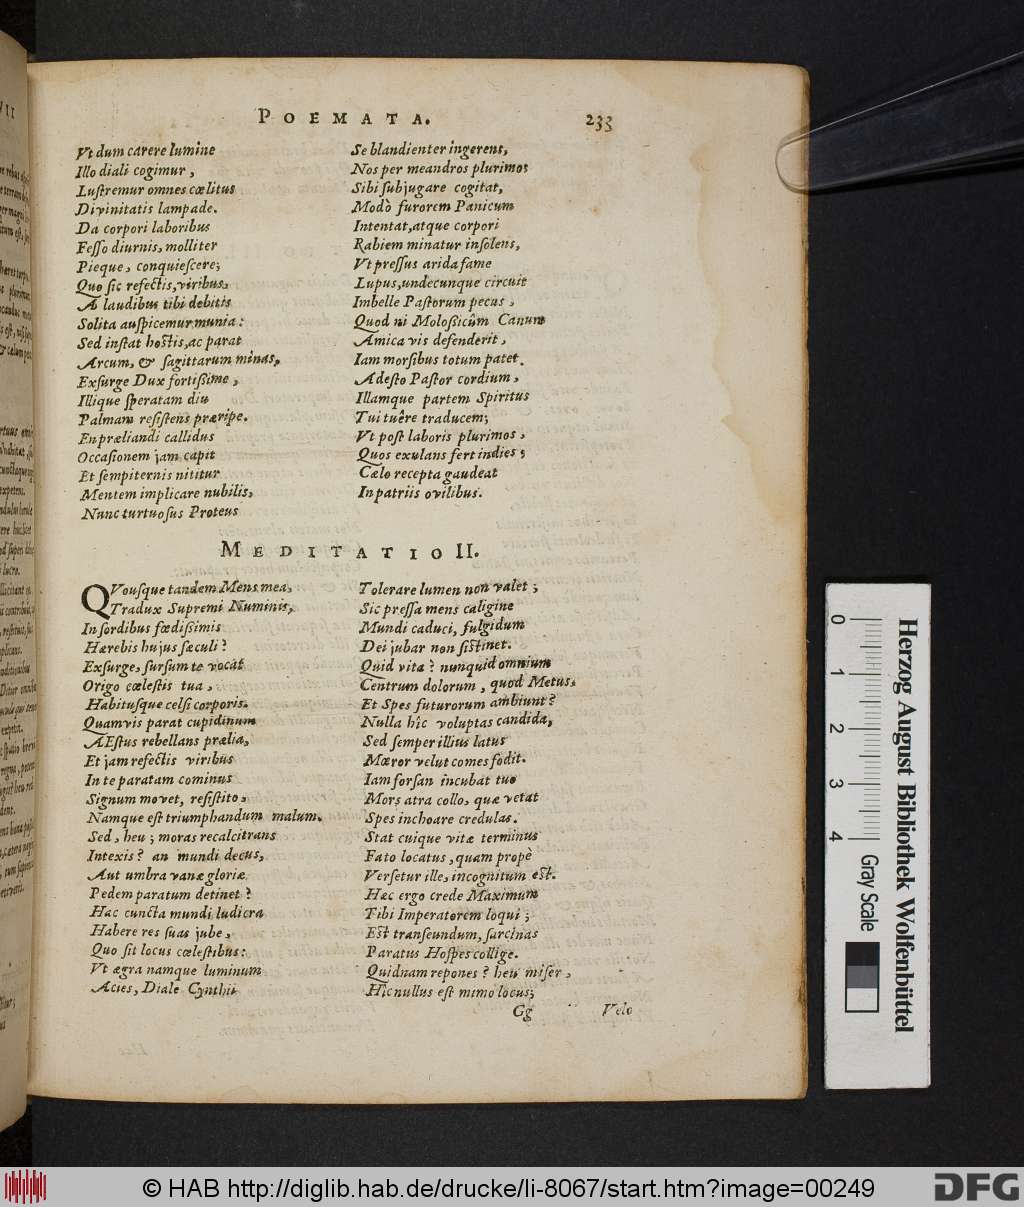 POEMATA. 233
Vt dum carere lumine
Illo diali cogimur,
Lustremur omnes cœlitus
Divinitatis lampade.
Da corpori laboribus
Fesso diurnis, molliter
Pieque, conquiescere;
Quo sic refectis, viribus,
A laudibus tibi debitis
Solita auspicemur munia:
Sed instat hostis, ac parat
Arcum, & sagittarum minas,
Exsurge Dux fortissime,
Illique speratam diu
Palmam resistens præripe.
En præliandi callidus
Occasionem jam capit
Et sempiternis nititur
Mentem implicare nubilis,
Nunc turtuosus Proteus
Se blandienter ingerens,
Nos per meandros plurimos
Sibi subjugare cogitat,
Modò furorem Panicum
Intentat, atque corpori
Rabiem minatur insolens,
Vt pressus arida fame
Lupus, undecunque circuit
Imbelle Pastorum pecus,
Quod ni Molossicûm Canum
Amica vis defenderit,
Iam morsibus totum patet.
Adesto Pastor cordium,
Illamque partem Spiritus
Tui tuêre traducem;
Vt post laboris plurimos,
Quos exulans fert indies;
Cælo recepta gaudeat
In patriis ovilibus.
MEDITATIO II.
QVousque tandem Mens mea,
Tradux Supremi Numinis,
In sordibus fœdissimis
Hærebis hujus sæculi?
Exsurge, sursum te vocat
Origo cœlestis tua,
Habitusque celsi corporis.
Quamvis parat cupidinum
AEstus rebellans prælia,
Et jam refectis viribus
In te paratam cominus
Signum movet, resistito,
Namque est triumphandum malum.
Sed, heu; moras recalcitrans
Intexis? an mundi decus,
Aut umbra vanæ gloriæ
Pedem paratum detinet?
Hac cuncta mundi ludicra
Habere res suas jube,
Quo sit locus cœlestibus:
Vt ægra namque luminum
Acies, Diale Cynthii
Tolerare lumen non valet;
Sic pressa mens caligine
Mundi caduci, fulgidum
Dei jubar non sistinet.
Quid vita? nunquid omnium
Centrum dolorum, quod Metus,
Et Spes futurorum ambiunt?
Nulla hîc voluptas candida,
Sed semper illius latus
Mæror velut comes fodit.
Iam forsan incubat tuo
Mors atra collo, quæ vetat
Spes inchoare credulas.
Stat cuique vitæ terminus
Fato locatus, quam propè
Versetur ille, incognitum est.
Hæc ergo crede Maximum
Tibi Imperatorem loqui;
Est transeundum, sarcinas
Paratus Hospes collige.
Quidnam repones? heu miser,
Hîc nullus est mimo locus;
Gg Velo
0 1 2 3 4
Herzog August Bibliothek Wolfenbüttel
Gray Scale
© HAB http://diglib.hab.de/drucke/li-8067/start.htm?image=00249
DFG